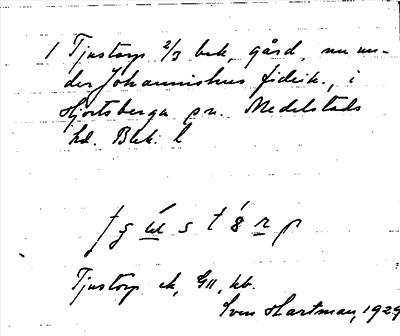 1 Tjustorp 2/3 bek. gård, nu un-
der Johannishus fideik., i
Hjortsberga sn. Medelstads
hd. Blek. l
Tjustorp ek, GII, kb.
Sven Hartman, 1929